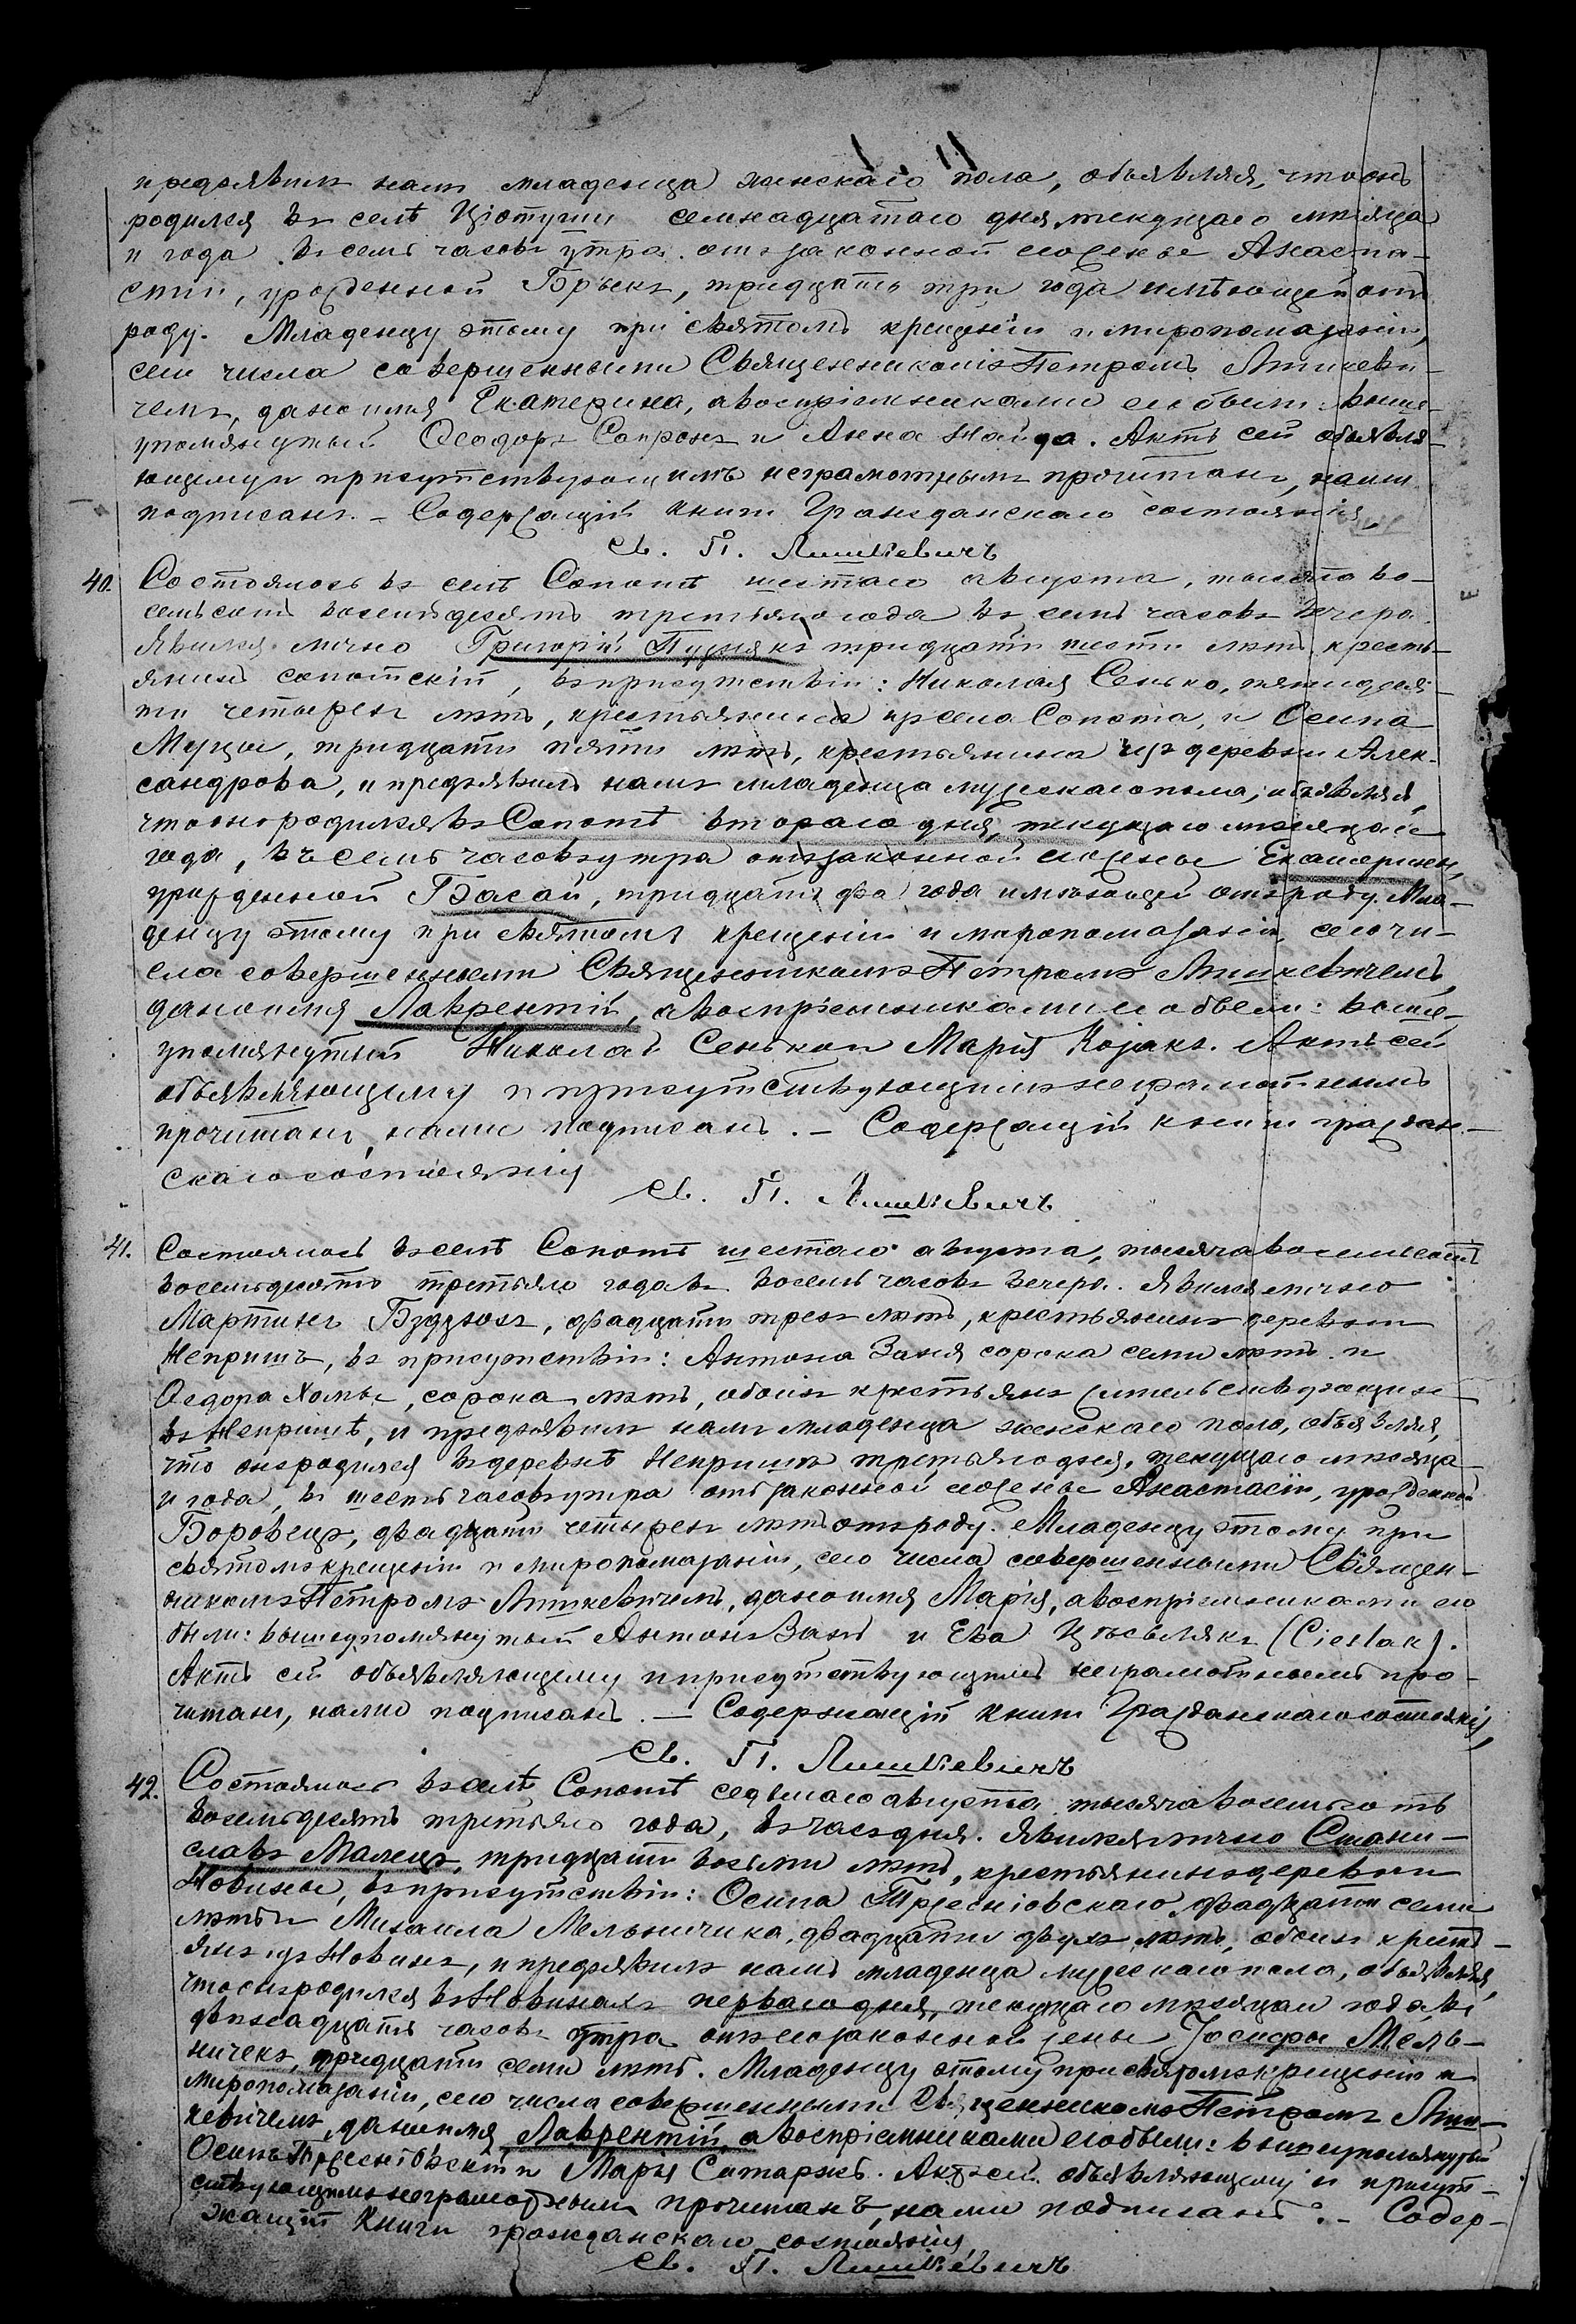 предъявилъ намъ младенца женскаго пола, объявляя, что онъ
родился въ селѣ Цютуши семнадцатаго дня текущаго мѣсяца
и года въ семь часовъ утра отъ законной его жены Анаста-
сіи, урожденной, тридцать три года имѣющей отъ
роду. Младенцу этому при святомъ крещеніи и миропомазаніи,
сего числа совершенными Священникомъ Петромъ
чемъ, дано имя Екатерина, а воспріемниками его были выше-
упомянутый Ѳеодоръ Сопронъ и Анна Найда. Актъ сей объявля-
ющему и присутствующимъ неграмотнымъ прочитанъ, нами
подписанъ. – Содержащій книги Гражданскаго состоянія,
Св. П.
40. Состоялось въ селѣ Сопотѣ шестаго августа, тысяча во-
семьсотъ восемьдесятъ третьяго года въ семь часовъ вечера.
Явился лично Григорій тридцати шести лѣтъ, кресть-
янинъ сопотскій, въ присутствіи: Николая Сенько, пятидеся-
ти четырехъ лѣтъ, крестьянина изъ села Сопота, и Осипа
Муцы, тридцати пяти лѣтъ, крестьянина изъ деревни Алек-
сандрова, и предъявилъ намъ младенца мужескаго пола, объявляя,
что онъ родился въ Сопотѣ втораго дня, текущаго мѣсяца и
года, въ семь часовъ утра отъ законной его жены Екатерины,
урожденной Басай, тридцать два года имѣющей отъ роду. Мла-
денцу этому при святомъ крещеніи и миропомазаніи, сего чи-
сла совершенными Священникомъ Петромъ
дано имя Лаврентій, а воспріемниками его были: выше-
упомянутый Николай Сенько и Марія Козакъ. Актъ сей
объявляющему и присутствующимъ неграмотнымъ
прочитанъ, нами подписанъ. – Содержащій книги граждан-
скаго состоянія
Св. П.
41. Состоялось въ селѣ Сопотѣ шестаго августа, тысяча восемьсотъ
восемьдесятъ третьяго года въ восемь часовъ вечера. Явился лично
Мартинъ, двадцати трехъ лѣтъ, крестьянинъ деревни
Непришъ, въ присутствіи: Антона Заня сорока семи лѣтъ и
Ѳедора Хомы, сорока лѣтъ, обоихъ крестьянъ жительствующихъ
въ Непришѣ, и предъявилъ намъ младенца женскаго пола, объявляя,
что онъ родился въ деревнѣ Непришъ третьяго дня, текущаго мѣсяца
и года, въ шесть часовъ утра отъ законной его жены Анастасіи, урожденной
Боровецъ, двадцати четырехъ лѣтъ отъ роду. Младенцу этому при
святомъ крещеніи и миропомазаніи, сего числа совершенными Священ-
никомъ Петромъ, дано имя Марія, а воспріемниками его
были: вышеупомянутый Антонъ Зань и Ева Цѣсьлякъ (Cieslak).
Актъ сей объявляющему и присутствующимъ неграмотнымъ про-
читанъ, нами подписанъ. – Содержащій книги Гражданскаго состоянія,
Св. П.
42. Состоялось въ селѣ Сопотѣ седьмаго августа тысяча восемьсотъ
восемьдесятъ третьяго года, въ часъ дня. Явился лично Стани-
славъ Малецъ, тридцати восьми лѣтъ, крестьянинъ деревни
Новины, въ присутствіи: Осипа, двадцати семи
лѣтъ и Михаила Мельничика, двадцати двухъ лѣтъ, обоихъ кресть-
янъ изъ Новинъ, и предъявилъ намъ младенца мужескаго пола, объявляя,
что онъ родился въ Новинахъ перваго дня, текущаго мѣсяца и года, въ
двѣнадцать часовъ утра отъ его законной жены Іосифы Мель-
ничекъ, тридцати семи лѣтъ. Младенцу этому при святомъ крещеніи и
миропомазаніи, сего числа совершенными Священникомъ Петромъ
дано имя Лаврентій, а воспріемниками его были: вышеупомянутый
Осипъ и Марія Ситаржъ. Актъ сей объявляющему и присут-
ствующимъ неграмотнымъ прочитанъ, нами подписанъ. – Содер-
жащій книги гражданскаго состоянія,
Св. П.